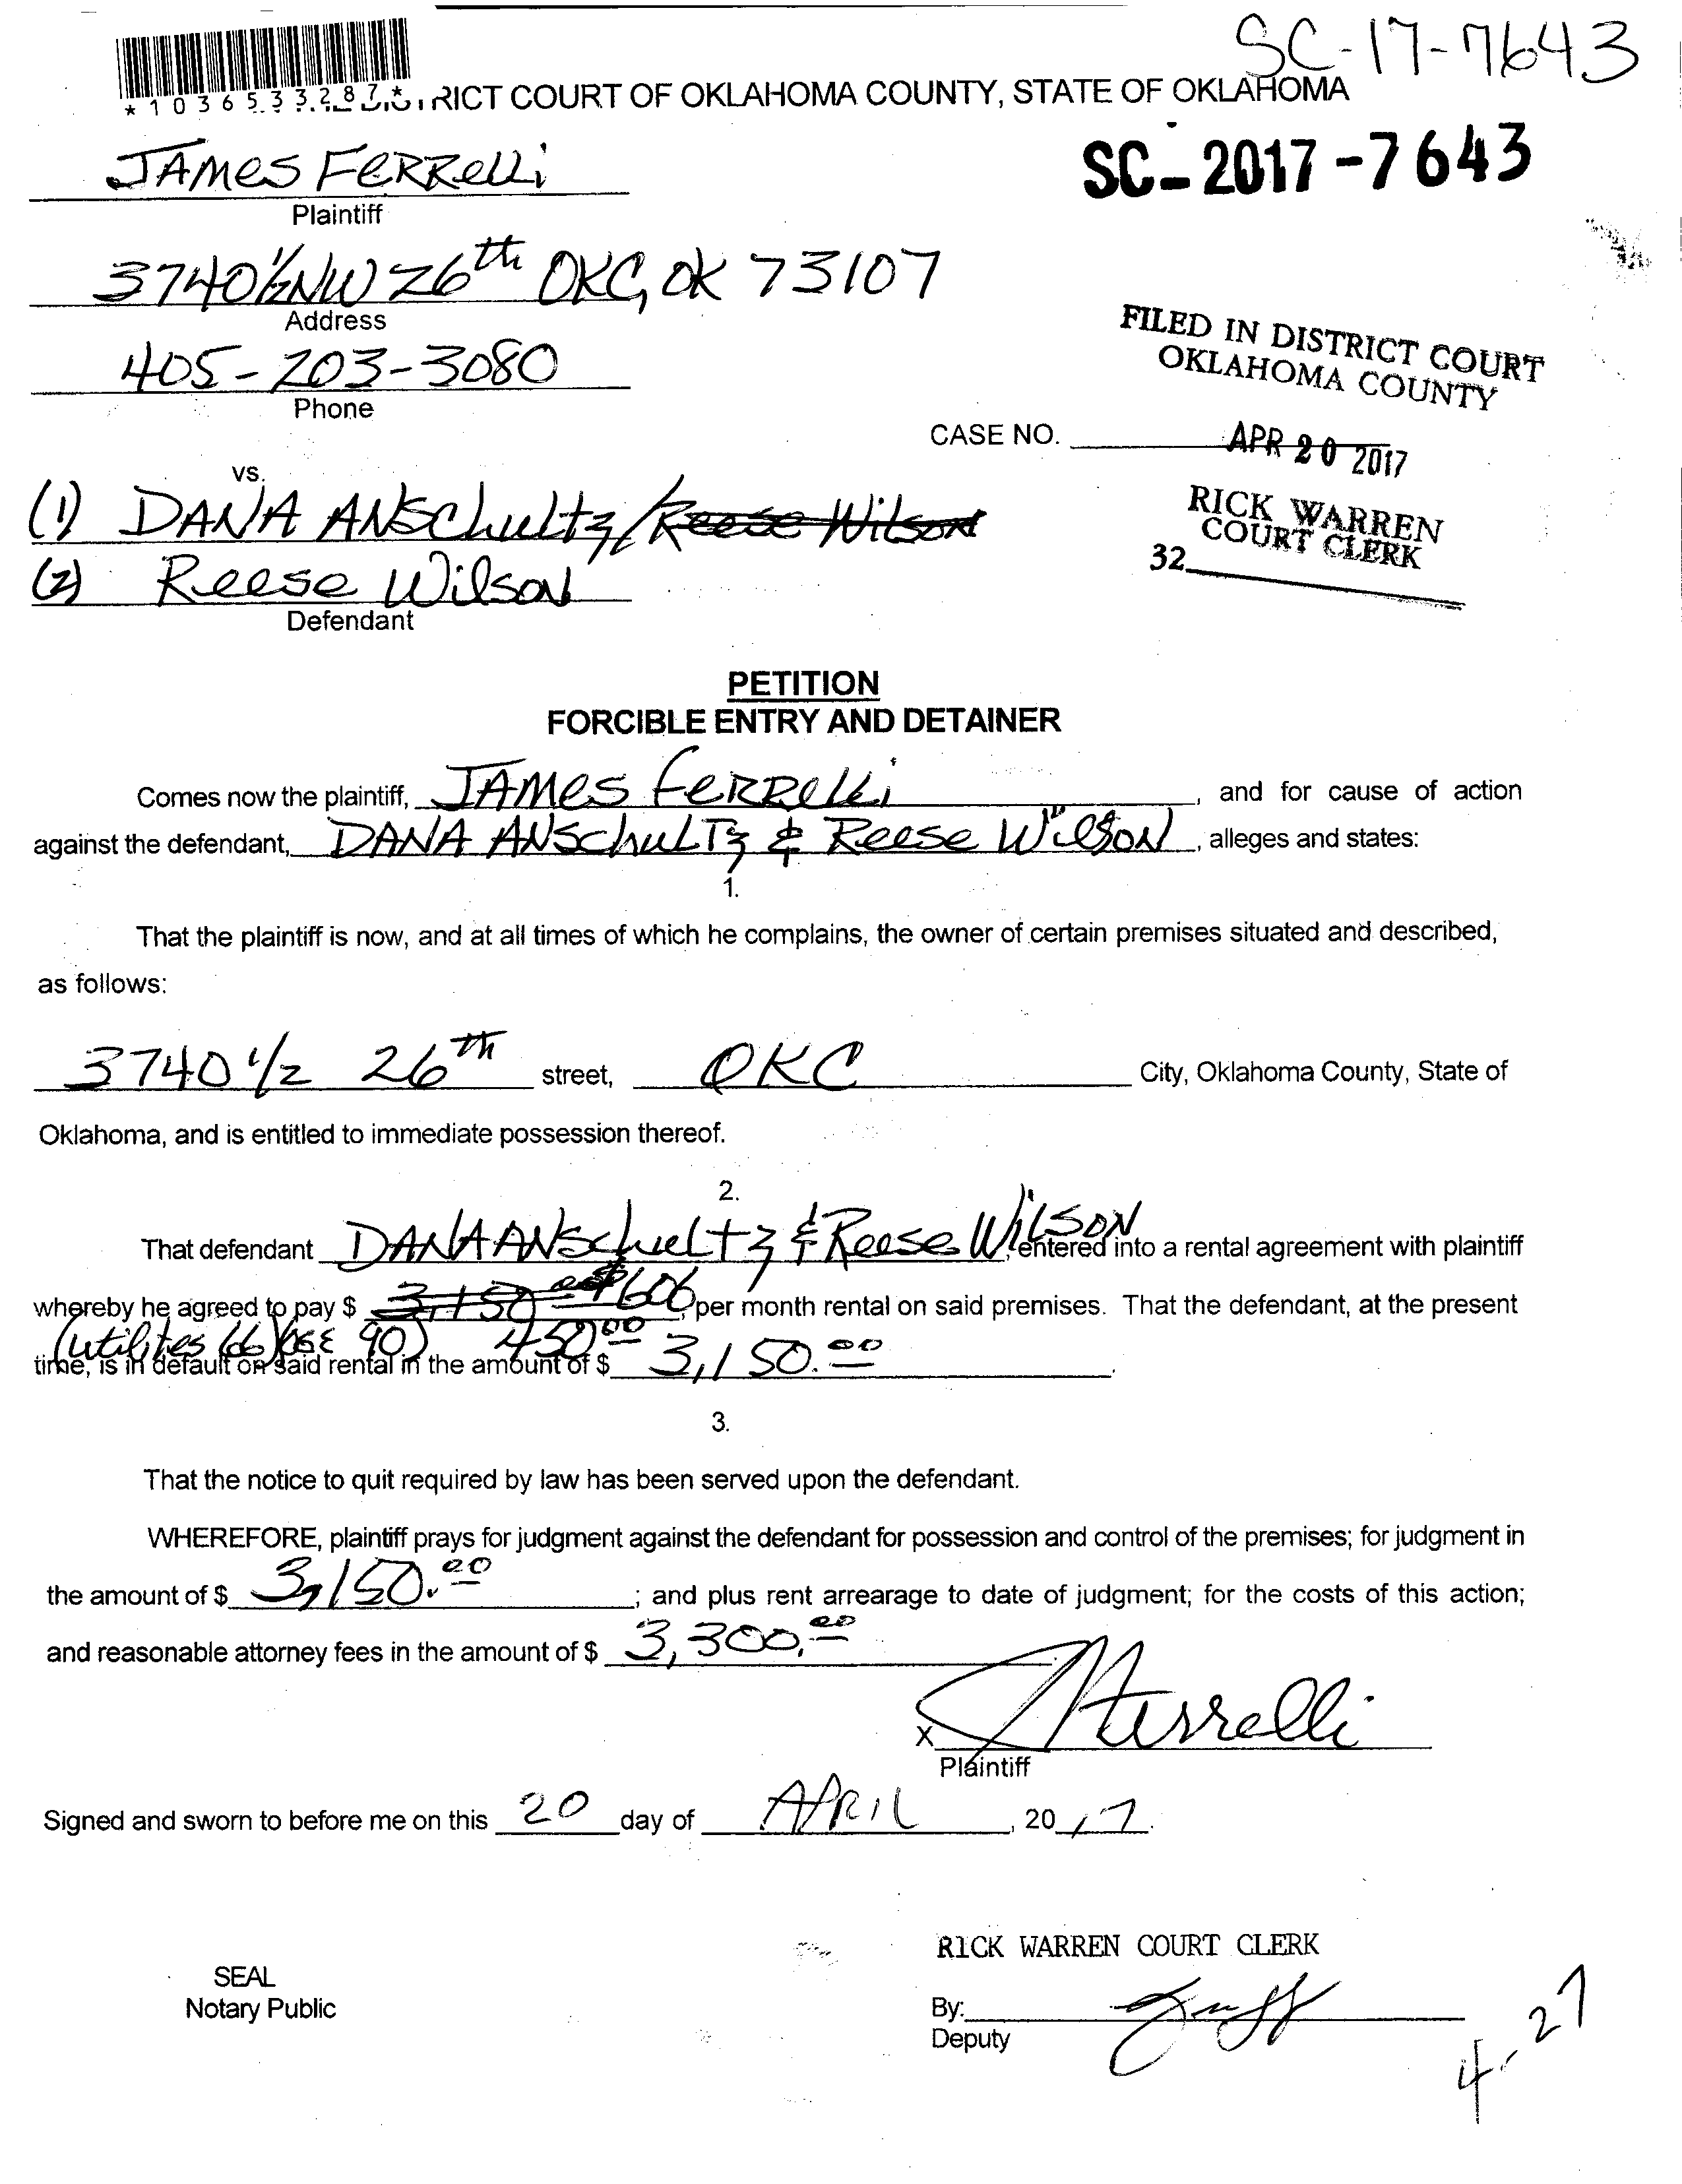 SC-17-7643
*1036533287* DISTRICT COURT OF OKLAHOMA COUNTY, STATE OF OKLAHOMA
JAMES FERRELLi
Plaintiff
SC-2017-7643
3740 1/2 NW 26th OKC, OK 73107
Address
405-203-3080
Phone
FILED IN DISTRICT COURT
OKLAHOMA COUNTY
CASE NO.
APR 20 2017
RICK WARREN
COURT CLERK
32
vs.
(1) DANA ANSchultz/Reese Wilson
(2) Reese Wilson
Defendant
PETITION
FORCIBLE ENTRY AND DETAINER
Comes now the plaintiff, JAMES FERRElli, and for cause of action
against the defendant, DANA ANSchuLTz & Reese Wilson, alleges and states:
1.
That the plaintiff is now, and at all times of which he complains, the owner of certain premises situated and described,
as follows:
3740 1/2 26th street, OKC City, Oklahoma County, State of
Oklahoma, and is entitled to immediate possession thereof.
2.
That defendant DANA ANSchueltz & Reese WilSON, entered into a rental agreement with plaintiff
whereby he agreed to pay $ 3,150 00 $606 per month rental on said premises. That the defendant, at the present
(utilites 66) 90) 450.00
time, is in default on said rental in the amount of $ 3,150.00.
3.
That the notice to quit required by law has been served upon the defendant.
WHEREFORE, plaintiff prays for judgment against the defendant for possession and control of the premises; for judgment in
the amount of $ 3,150.00; and plus rent arrearage to date of judgment; for the costs of this action;
and reasonable attorney fees in the amount of $ 3,300.00
x JFerrelli
Plaintiff
Signed and sworn to before me on this 20 day of APRIL, 2017.
RICK WARREN COURT CLERK
SEAL
Notary Public
By:
Deputy
4-27